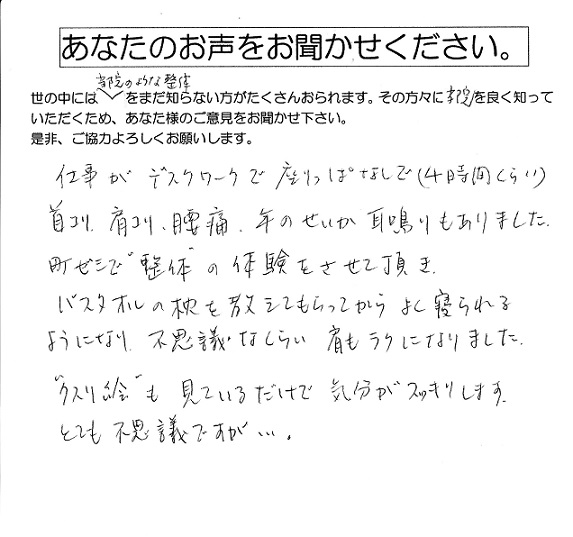 あなたのお声をお聞かせください。
当院のような整体
世の中には をまだ知らない方がたくさんおられます。その方々に当院を良く知って
いただくため、あなた様のご意見をお聞かせ下さい。
是非、ご協力よろしくお願いします。
仕事が デスクワークで 座りっぱなしで(4時間くらい)
首コリ、肩コリ、腰痛、年のせいか 耳鳴りもありました。
町ゼミで"整体"の体験をさせて頂き、
バスタオルの枕を教えてもらってから よく寝られる
ようになり、不思議なくらい 肩もラクになりました。
"クスリ絵"も 見ているだけで 気分がスッキリします。
とても不思議ですが…。